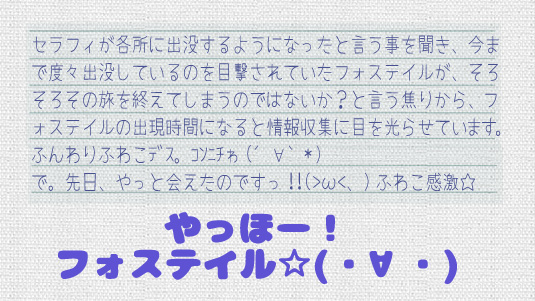 セラフィが各所に出没するようになったと言う事を聞き、今ま
で度々出没しているのを目撃されていたフォステイルが、そろ
そろその旅を終えてしまうのではないか?と言う焦りから、フ
ォステイルの出現時間になると情報収集に目を光らせています。
ふんわりふわこデス。コンニチゎ(´ ∀`*)
で。先日、やっと会えたのですっ!!(>ω<、)ふわこ感激☆
やっほー!
フォステイル☆(・∀・)